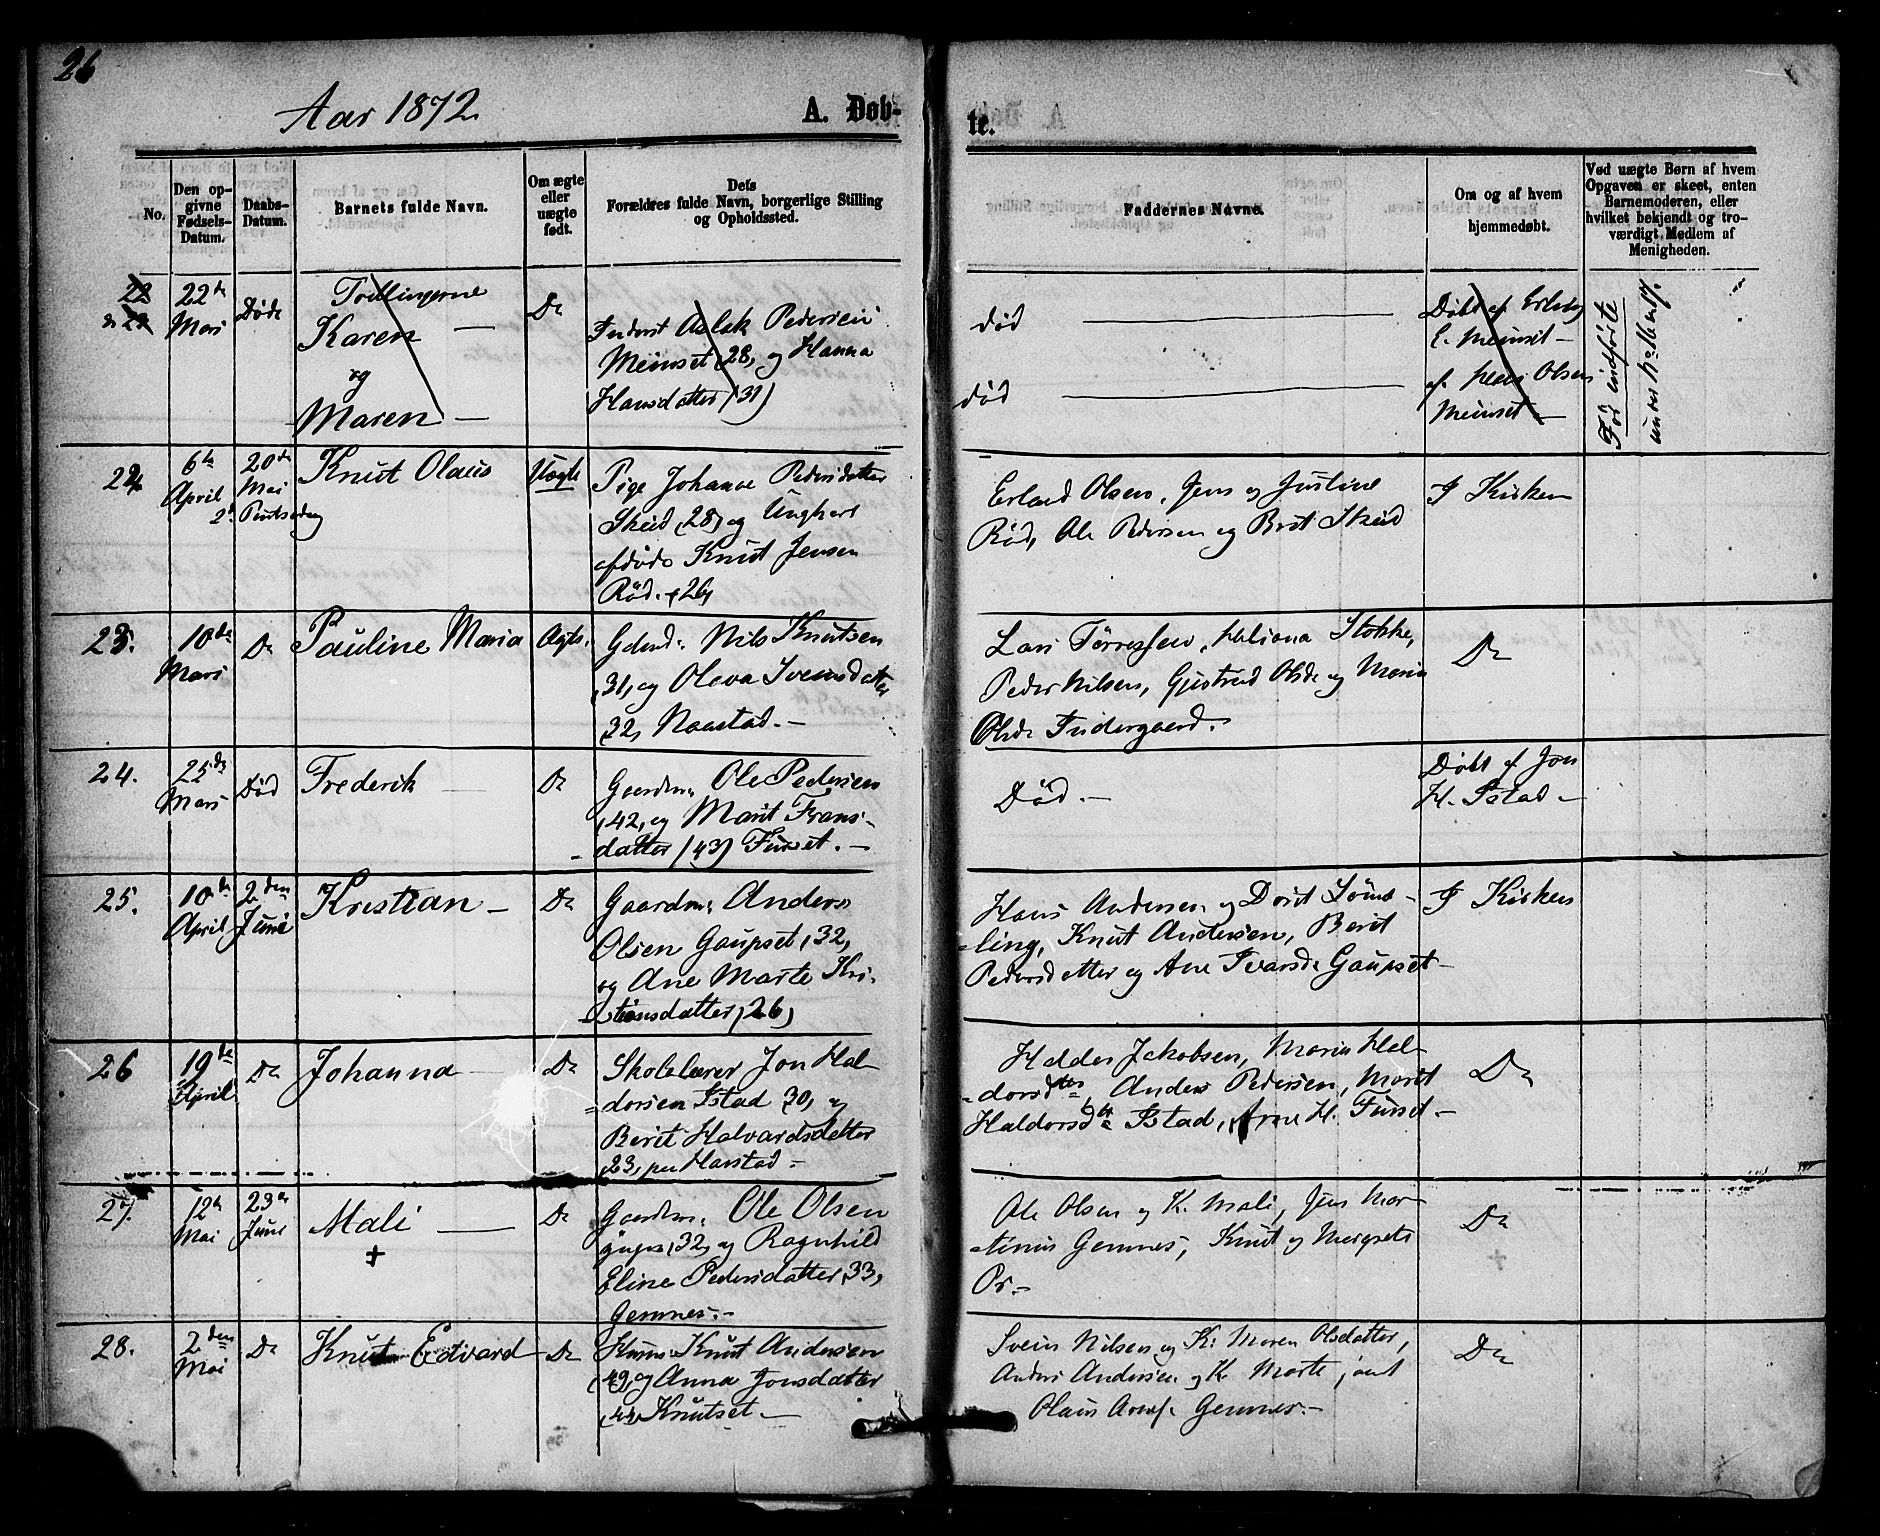 26
Aar 1872.
A. Døb-
te.
No.
Den op-
givne
Fødsels-
Datum.
Daabs-
Datum.
Barnets fulde Navn.
Om ægte
eller
uægte
født.
Des
Forældres fulde Navn, borgerlige Stilling
og Opholdssted.
Faddernes Navne.
Om og af hvem
hjemmedøbt.
Ved uægte Børn af hvem
Opgaven er skeet, enten
Barnemoderen, eller
hvilket bekjendt og tro-
værdigt Medlem af
Menigheden.
22
22de
Mars
Døde
Trillingerne
Karen —
og
Maren —
Do
Inderst Aslak Pedersen
Meinset, 28, og Hanna
Hansdatter (31)
død
død
Døbt af Erland
E. Meinset —
af Peder Olsen
Meinset —
Før indførte
under No
22.
6te
April
20de
Mai
2. Pintsedag
Knut Olaus
Uægte
Pige Johanne Pedersdatter
Skeid (28) og Ungkarl
afdøde Knut Jensen
Rød. (26)
Erland Olsen, Jens og Justine
Rød, Ole Pedersen og Brit Skeid
I Kirken
23.
10de
Mars
Do
Pauline Maria
Ægte.
Gdmd: Nils Knutsen
31, og Oleva Svensdatter
32, Naastad. —
Lars Tørresen, Stokke,
Peder Nilsen, Gjertrud Olsdr og Maria
Olsdr Indergaard.
Do
24.
25de
Mars
Død
Frederik
Do
Gaardm: Ole Pedersen
42, og Marit Frans-
datter (43) Furset. —
Død. —
Døbt af Jon
H. Istad —
25.
10de
April
2den
Juni
Kristian —
Do
Gaardm: Anders
Olsen Gaupset, 32,
og Ane Marte Kri-
stiansdatter, 26,
Hans Andersen og Dorit Søms-
ling, Knut Andersen, Berit
Pedersdatter og Ane Ivarsdr Gaupset —
I Kirken
26
19de
April
Do
Johanna
Do
Skolelærer Jon Hal-
dorsen Istad 30, og
Berit Halvardsdatter
23, Harstad —
Haldor Jakobsen, Marit Hal-
dorsdtr, Anders Pedersen, Marit
Haldorsdtr Istad, Arne H. Furset —
Do
27.
12te
Mai
23de
Juni
Mali —
+
Do
Gaardm: Ole Olsen
32, og Ragnhild
Eline Pedersdatter, 33,
Gemnes. —
Ole Olsen og K. Mali, Jens Mar-
tinus Gemnes, Knut og Margrete
Do
+
28.
2den
Mai
Do
Knut Edvard
Do
Knut Andersen
(49, og Anna Jonsdatter
(44, Knutset —
Svein Nilsen og K: Maren Olsdatter,
Anders Andersen og K. Marte, samt
Olaus Gemnes. —
Do